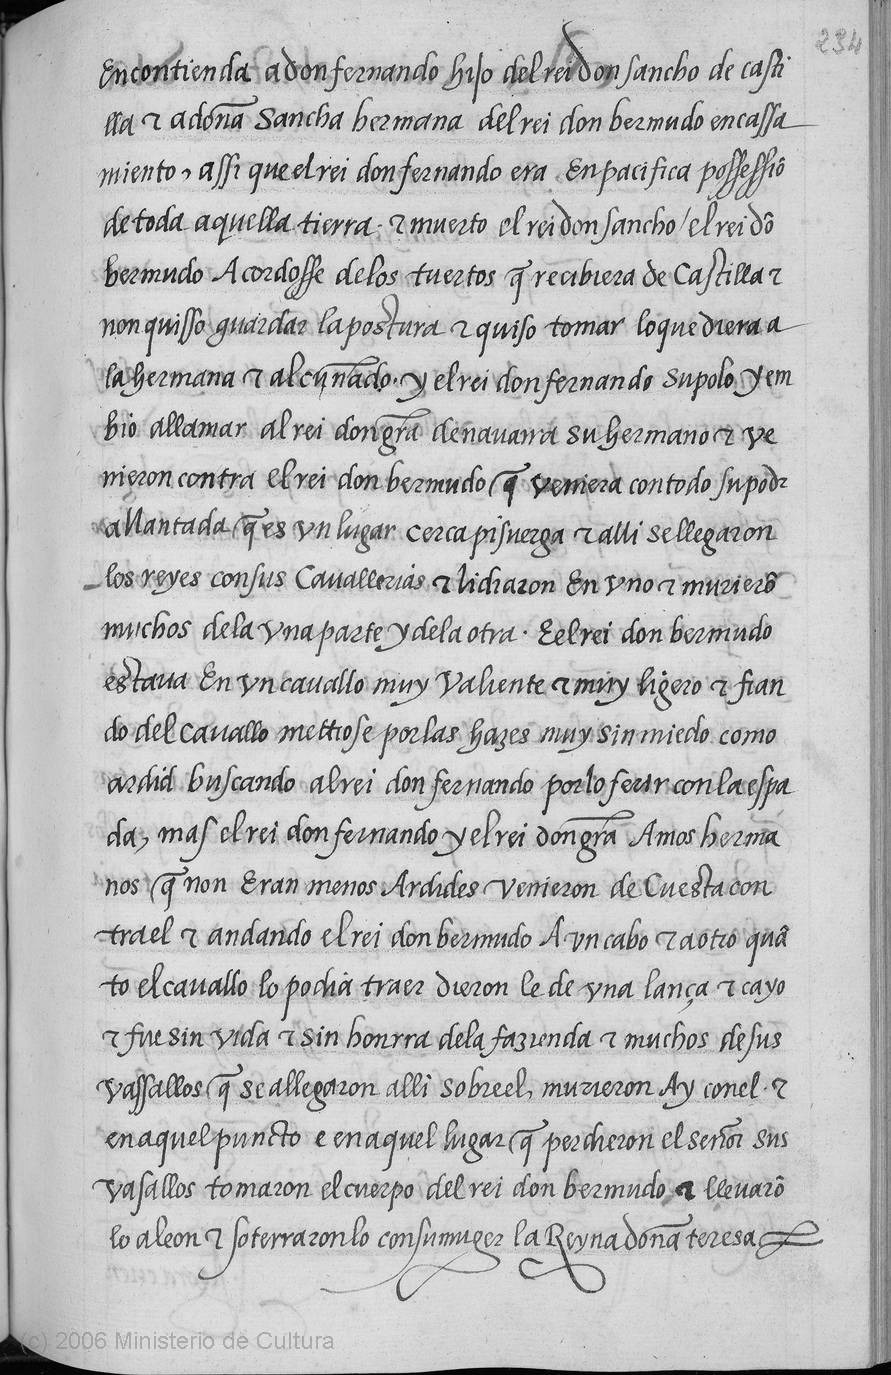 234
Encontienda adonfernando hijo delreidonsancho de casti
lla & adoña Sancha hermana delrei don bermudo encassa
miento, assi queelrei donfernando era Enpacifica possessiõ
detoda aquella tierra. & muerto elreidonsancho / elreidõ
bermudo Acordosse delos tuertos q̃ recibiera de Castilla &
nonquisso guardar lapostura & quiso tomar loquediera a
lahermana & alcuñado. y elrei donfernando supolo yem
bio allamar alrei dongr̃a denauarra suhermano & ve
nieroncontra elrei don bermudo (q̃ veniera contodo supodr
allantada (q̃ es vn lugar cerca pisuerga & alli sellegaron
los reyes consus Cauallerias & lidiaron En vno & murierõ
muchos dela vnaparte ydelaotra. Eelrei don bermudo
estaua En vncauallo muy Valiente & muy ligero & fian
do delcauallo mettiose porlas hazes muy sinmiedo como
ardid buscando alrei donfernando porlo ferir conlaespa
da, mas elrei donfernando yelrei dongr̃a Amos herma
nos (q̃ non Eran menos Ardides venieron de Cuesta con
trael & andando elrei donbermudo A vn cabo & aotro quã
to elcauallo lo podia traer dieron le de vna lança & cayo
& fue sin vida & sin honrra dela fazienda & muchos desus
vassallos (q̃ se allegaron alli sobreel, murieron Ay conel. &
enaquelpuncto e enaquel lugar (q̃ perdieron elseñor sus
vasallos tomaron elcuerpo delrei don bermudo & lleuarõ
lo aleon & soterraronlo consumuger la Reynadoña teresa
(c) 2006 Ministerio de Cultura